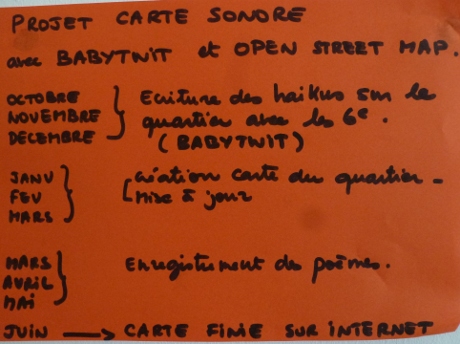 PROJET CARTE SONORE
avec BABYTWIT et OPEN STREET MAP.
OCTOBRE
NOVEMBRE
DECEMBRE
Ecriture des haikus sur le
quartier avec les 6e.
(BABYTWIT)
JANV
FEV
MARS
Création carte du quartier -
Mise à jour
MARS
AVRIL
MAI
Enregistrement des poèmes.
JUIN → CARTE FINIE SUR INTERNET